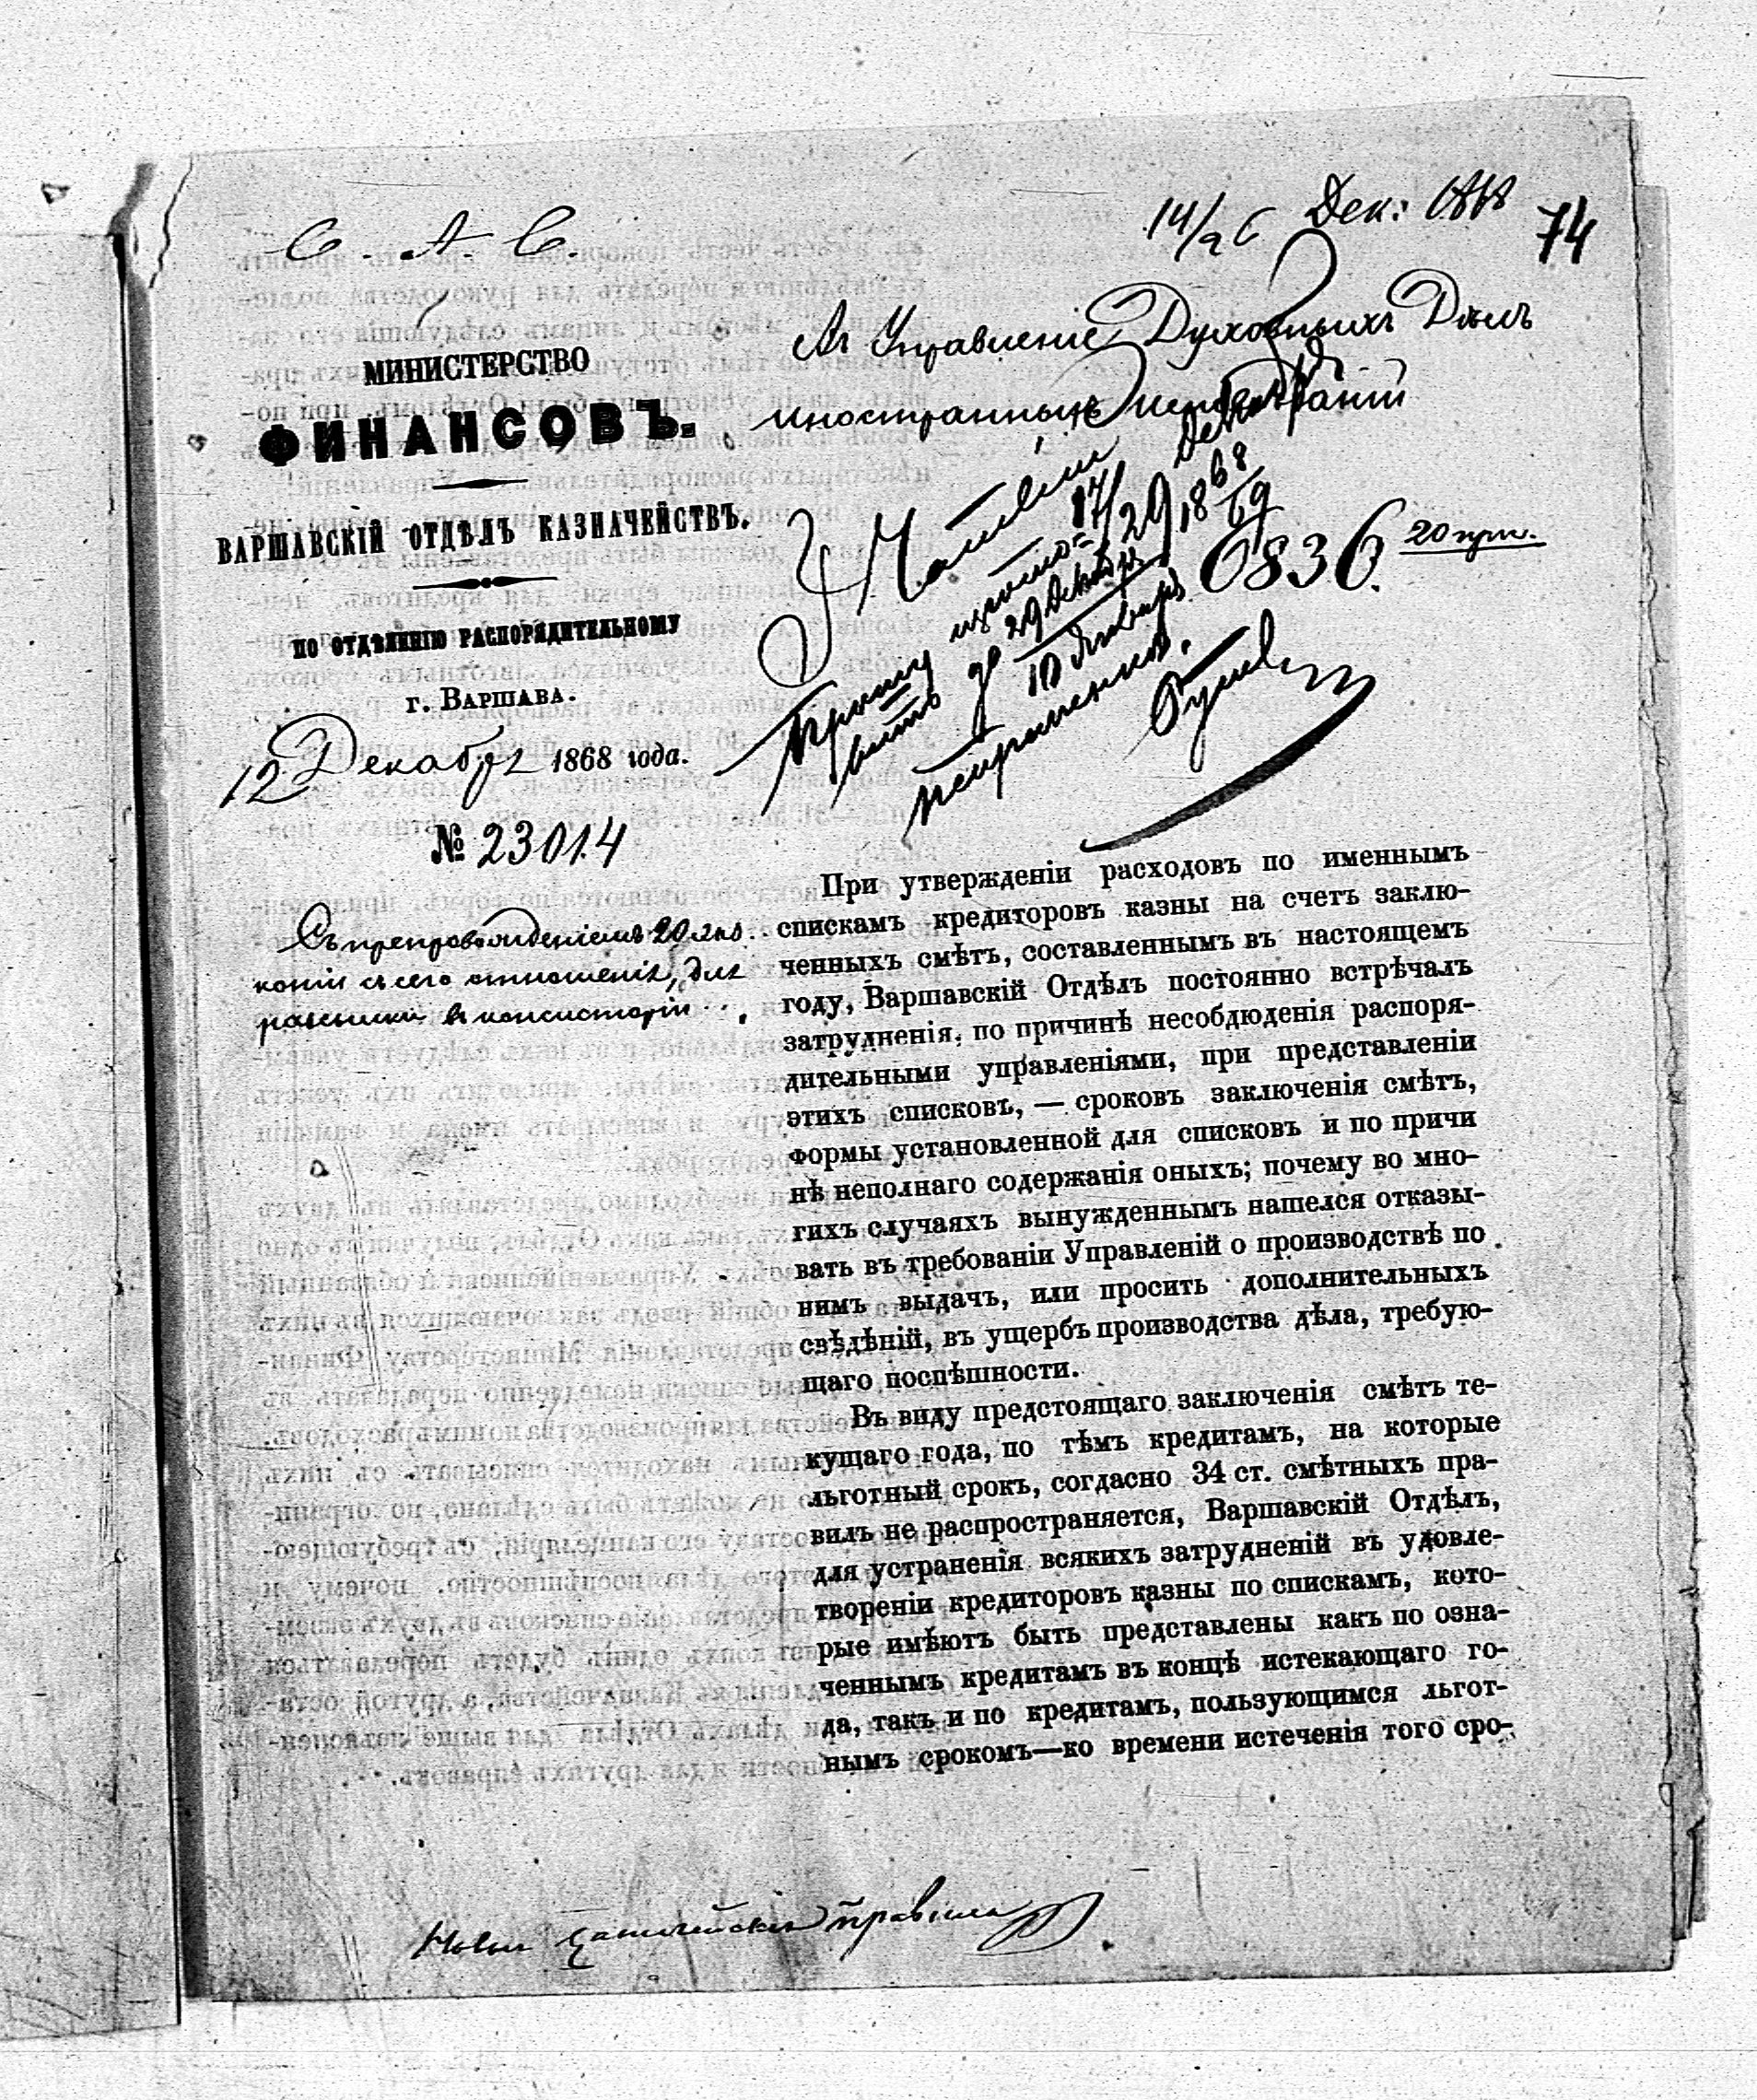 С. А. С.
14/26 Дек: 1868
74
Въ Управленіе Духовныхъ Дѣлъ
иностранныхъ исповѣданій
МИНИСТЕРСТВО
ФИНАНСОВЪ.
ВАРШАВСКІЙ ОТДѢЛЪ КАЗНАЧЕЙСТВЪ.
ПО ОТДѢЛЕНІЮ РАСПОРЯДИТЕЛЬНОМУ
г. ВАРШАВА.
12 Декабря 1868 года.
№ 23014
Съ препровожденіемъ 20
копій съ сего отношенія, для
въ консисторіи
17/29 Декабря 1868
6836. 20 прил.
Прошу
до 29 Декабря
10 Января
69
При утвержденіи расходовъ по именнымъ
спискамъ кредиторовъ казны на счетъ заклю-
ченныхъ смѣтъ, составленнымъ въ настоящемъ
году, Варшавскій Отдѣлъ постоянно встрѣчалъ
затрудненія, по причинѣ несобдюденія распоря-
дительными управленіями, при представленіи
этихъ списковъ, — сроковъ заключенія смѣтъ,
формы установленной для списковъ и по причи
нѣ неполнаго содержанія оныхъ; почему во мно-
гихъ случаяхъ вынужденнымъ нашелся отказы-
вать въ требованіи Управленій о производствѣ по
нимъ выдачъ, или просить дополнительныхъ
свѣдѣній, въ ущербъ производства дѣла, требую-
щаго поспѣшности.
Въ виду предстоящаго заключенія смѣтъ те-
кущаго года, по тѣмъ кредитамъ, на которые
льготный срокъ, согдасно 34 ст. смѣтныхъ пра-
вилъ не распространяется, Варшавскій Отдѣлъ,
для устраненія всякихъ затрудненій въ удовле-
твореніи кредиторовъ казны по спискамъ, кото-
рые имѣютъ быть представлены какъ по озна-
ченнымъ кредитамъ въ концѣ истекающаго го-
да, такъ и по кредитамъ, пользующимся льгот-
нымъ срокомъ—ко времени истеченія того сро-